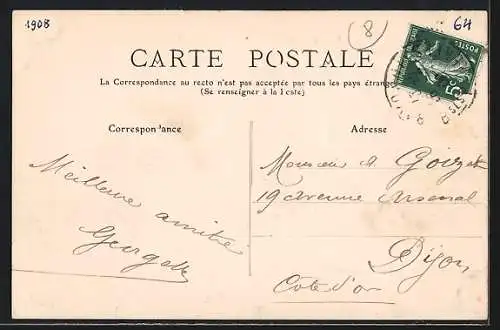 1908
8
64
CARTE POSTALE
La Correspondance au recto n'est pas acceptée par tous les pays étrang
(Se renseigner à la Poste)
POSTES
5
Correspondance
Adresse
Meilleure amitié
Georgette
Monsieur A.
19 Avenue Arsenal
Dijon
Cote d'or